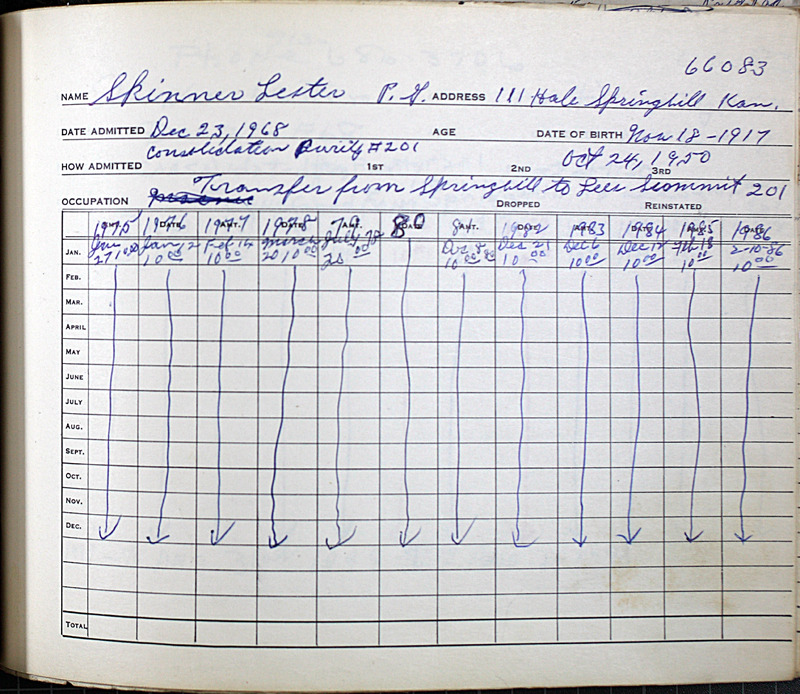 66083
NAME Skinner Lester P. G. ADDRESS 111 Hale Springhill Kan.
DATE ADMITTED Dec 23, 1968 AGE DATE OF BIRTH Nov 18-1917
HOW ADMITTED Consolidation Purity #201 1ST 2ND Oct 24, 1950 3RD
OCCUPATION Transfer from Springhill to Lee Summit 201
DROPPED REINSTATED
1975 1976 1977 1978 79 80 81 1982 1983 1984 1985 1986
JAN. Jan 27 10.00 Jan, 2 10 00 Feb 14 10 00 March 20 10 00 July 78 20 00 Dec 10 00 Dec 21 10 00 Dec 6 10 00 Dec 12 10 00 Feb 13 10 00 2-10-86 10 00
FEB.
MAR.
APRIL
MAY
JUNE
JULY
AUG.
SEPT.
OCT.
NOV.
DEC.
TOTAL